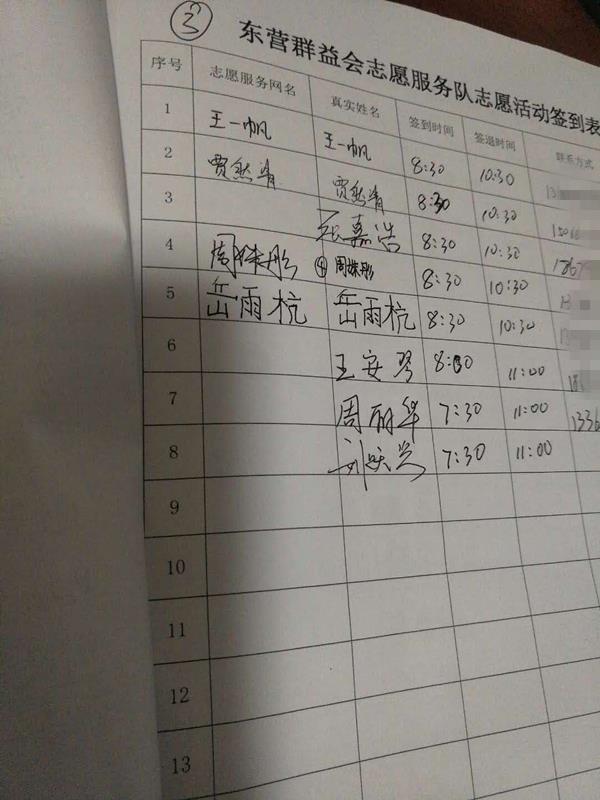 ③
东营群益会志愿服务队志愿活动签到表
序号 志愿服务网名 真实姓名 签到时间 签退时间 联系方式
1 王一帆 王一帆 8:30 10:30
2 贾然清 贾然清 8:30 10:30
3 张嘉浩 8:30 10:30
4 周姝彤 ④ 周姝彤 8:30 10:30
5 岳雨杭 岳雨杭 8:30 10:30
6 王安琴 11:00
7 周丽华 7:30 11:00 1336
8 7:30 11:00
9
10
11
12
13